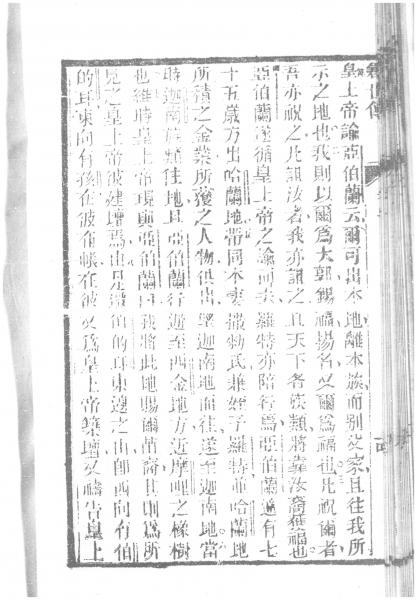 皇上帝諭亞伯蘭云爾可出本地離本族而別父家且往我所
示之地也我則以爾爲大郭錫福揚名又爾爲福也凡祝爾者
吾亦祝之凡詛汝者我亦詛之且天下各族類將靠汝獲福也
亞伯蘭遂循皇上帝之諭而去羅特亦陪行焉亞伯蘭適有七
十五歲方出哈蘭地帶同本妻撒勑氏兼姪子羅特並哈蘭地
所積之金業所獲之人物俱出望迦南地而往遂至迦南地當
時迦南族類住地且亞伯蘭行遊至西金地方近摩哩之橡樹
也維時皇上帝現與亞伯蘭曰我將此地賜爾苗裔其則爲所
見之皇上帝彼建壇焉由是徙伯的耳東邊之山卽西向有伯
的耳東向有孩在彼布帳在彼又爲皇上帝築壇又禱告皇上